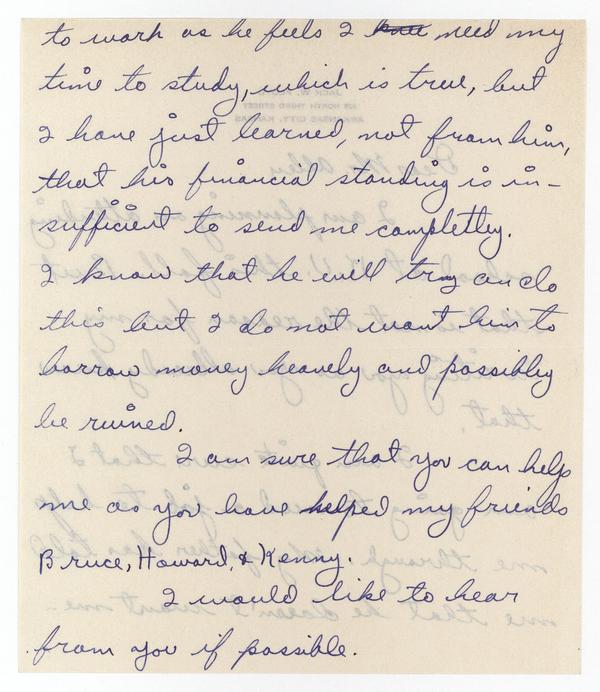 to work as he feels I need my
time to study, which is true, but
I have just learned, not from him,
that his financial standing is in-
sufficient to send me completley.
I know that he will try an do
this but I do not want him to
borrow money heavely and possibley
be ruined.
I am sure that you can help
me as you have helped my friends
Bruce, Howard, & Kenny.
I would like to hear
from you if possible.